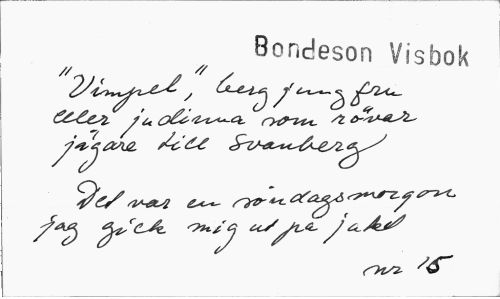 Bondeson Visbok
"Vimpel", bergjungfru
eller judinna som rövar
jägare till Svanberg
Det var en söndagsmorgon
jag gick mig ut på jakt
nr 15